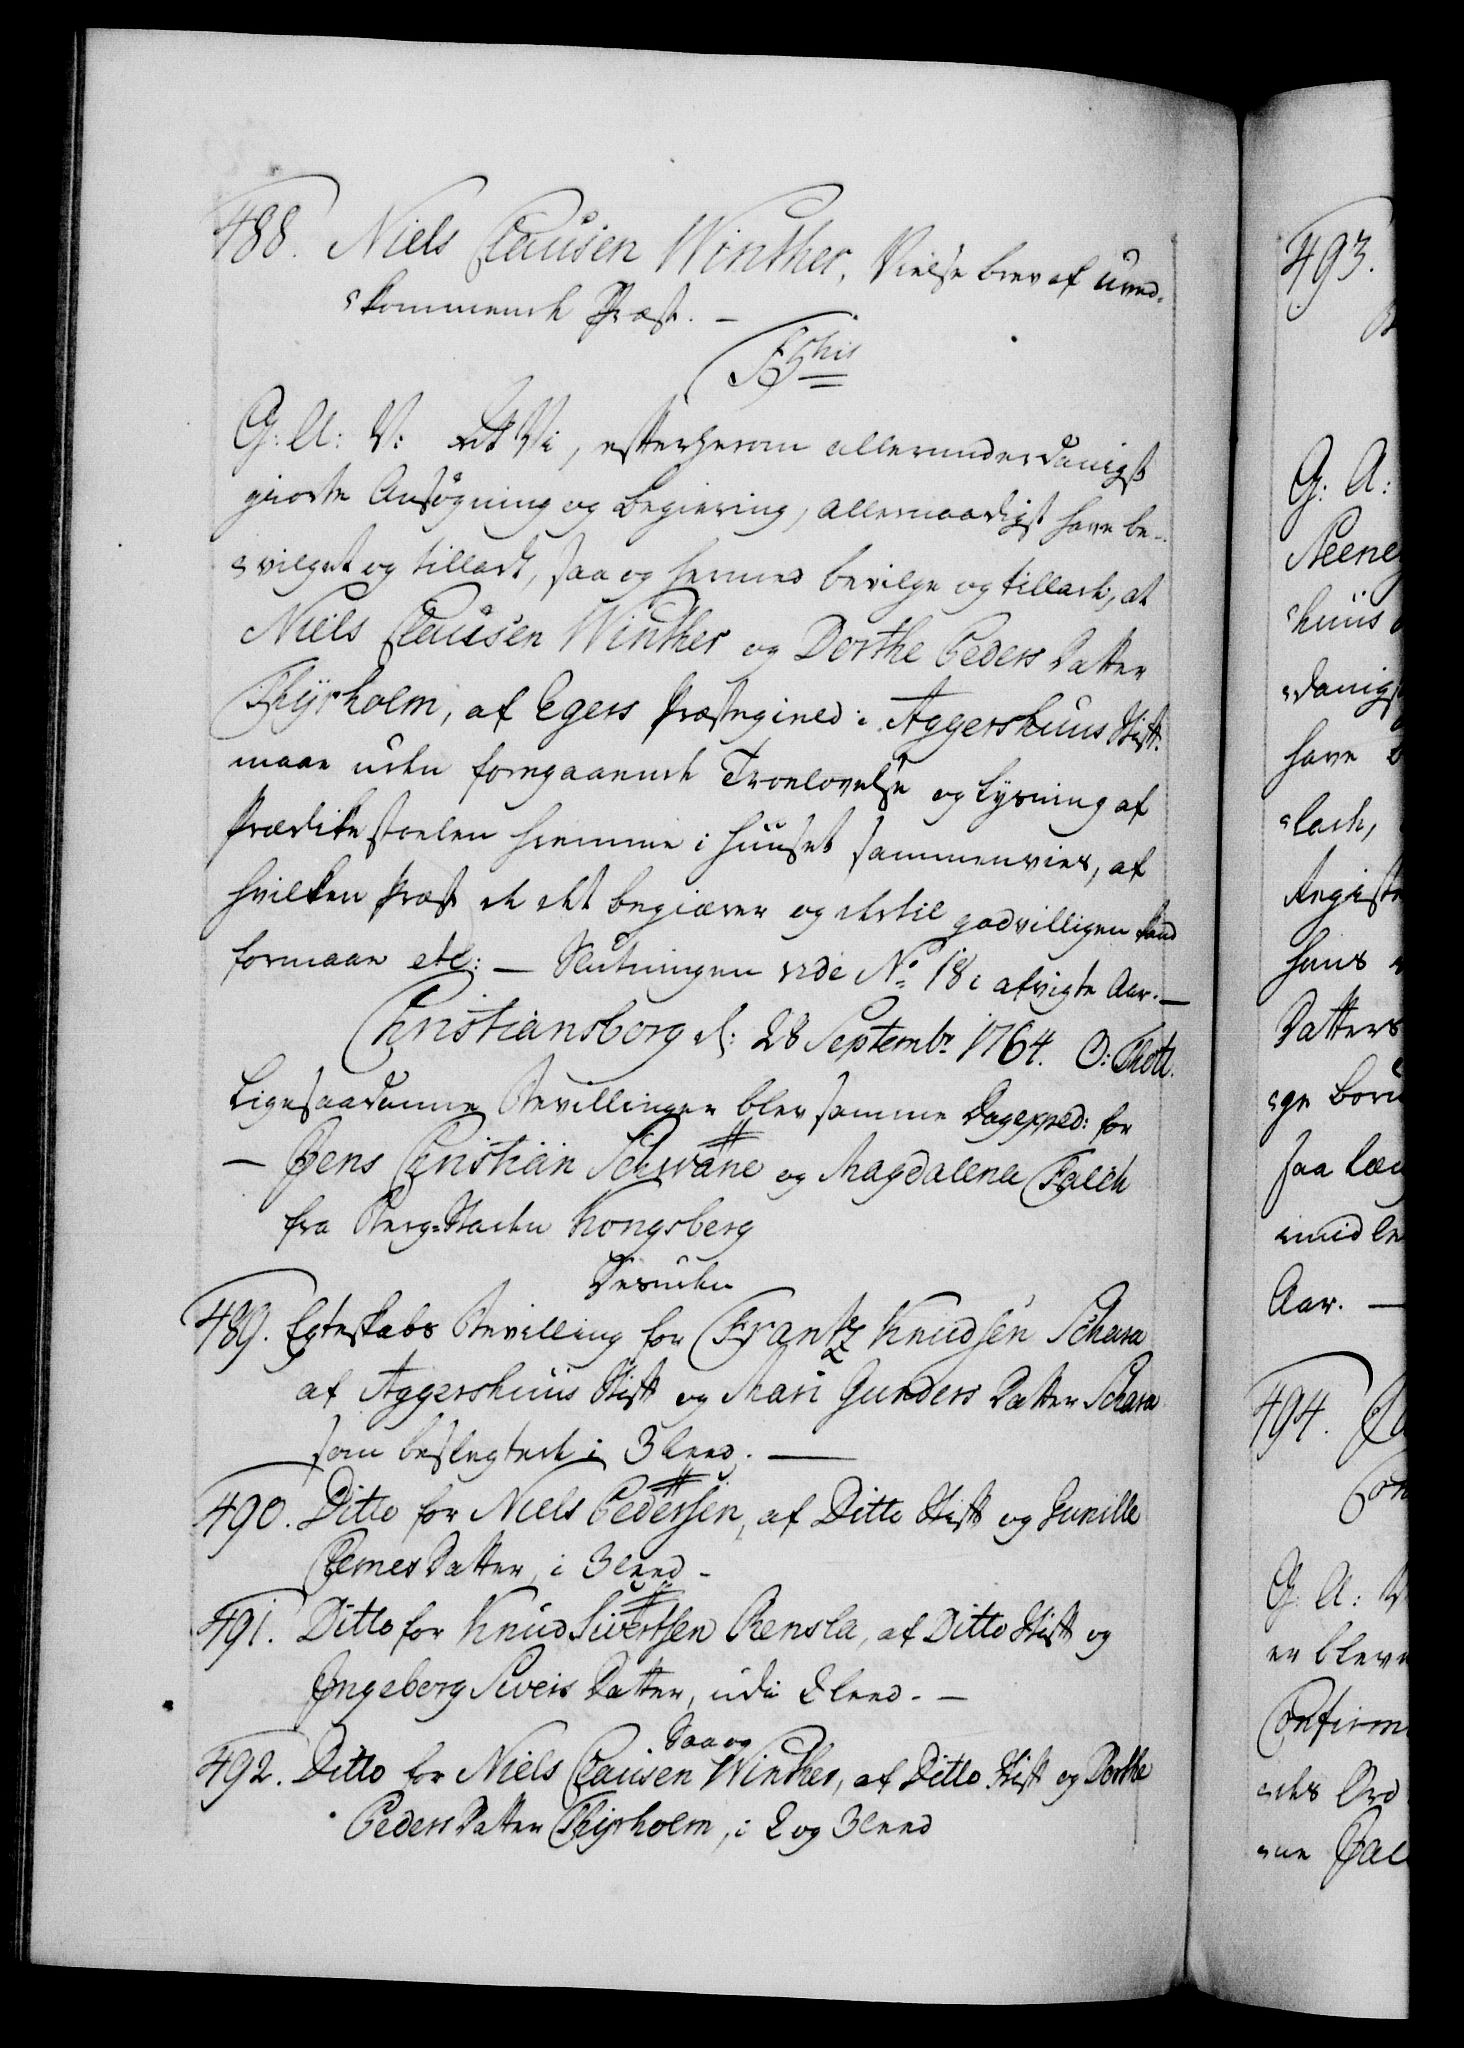 488. Niels Clausen Winther, Vielse brev af uved-
kommende Præst. -
F 5
G: A: V: at Vi, efter herom allerunderdanigst
giorte Ansøgning og begiering, allernaadigst have be-
vilget og tilladt, saa og hermed bevilge og tillade, at
Niels Clausen Winther og Dorthe Peders Datter
Thyrholm, af Egers Præstegield i Aggershuus Stift
maae uden foregaaende Troelovelse og Lysning af
Prædikestoelen hiemme i Huuset sammenvies, af
hvilken Præst de det begiærer og dertil godvilligen kand
formaae etc: - Slutningen vide No 18 i afvigte Aar. -
Christiansborg d: 28 Septembr. 1764. O: Thott.
Ligesaadanne Bevillinger blev samme Dag exped: for
- Jens Christian Schwane og Magdalena Falch
fra Berg-Staden Kongsberg
Desuden
489. Egteskabs Bevilling for Frantz Knudsen Schara
af Aggershuus Stift og Mari Gunders Datter Schara
som beslegtede i 3 leed. -
490. Ditto for Niels Pedersen, af Ditto Stift og Gunille
Clemes Datter, i 3 leed -
491. Ditto for Knud Sivertsen Rensla, af Ditto Stift og
Ingeborg Siveis Datter, udi 2 leed. -
Saa og
492. Ditto for Niels Clausen Winther, af Ditto Stift og Dorthe
Peders Datter Thyrholm, i 2 og 3 leed
493.
G: A:
huus
danigst
have
lade,
hans
Datters
saa
imidle
Aar. -
494.
G: A: V
er blev
Confirm